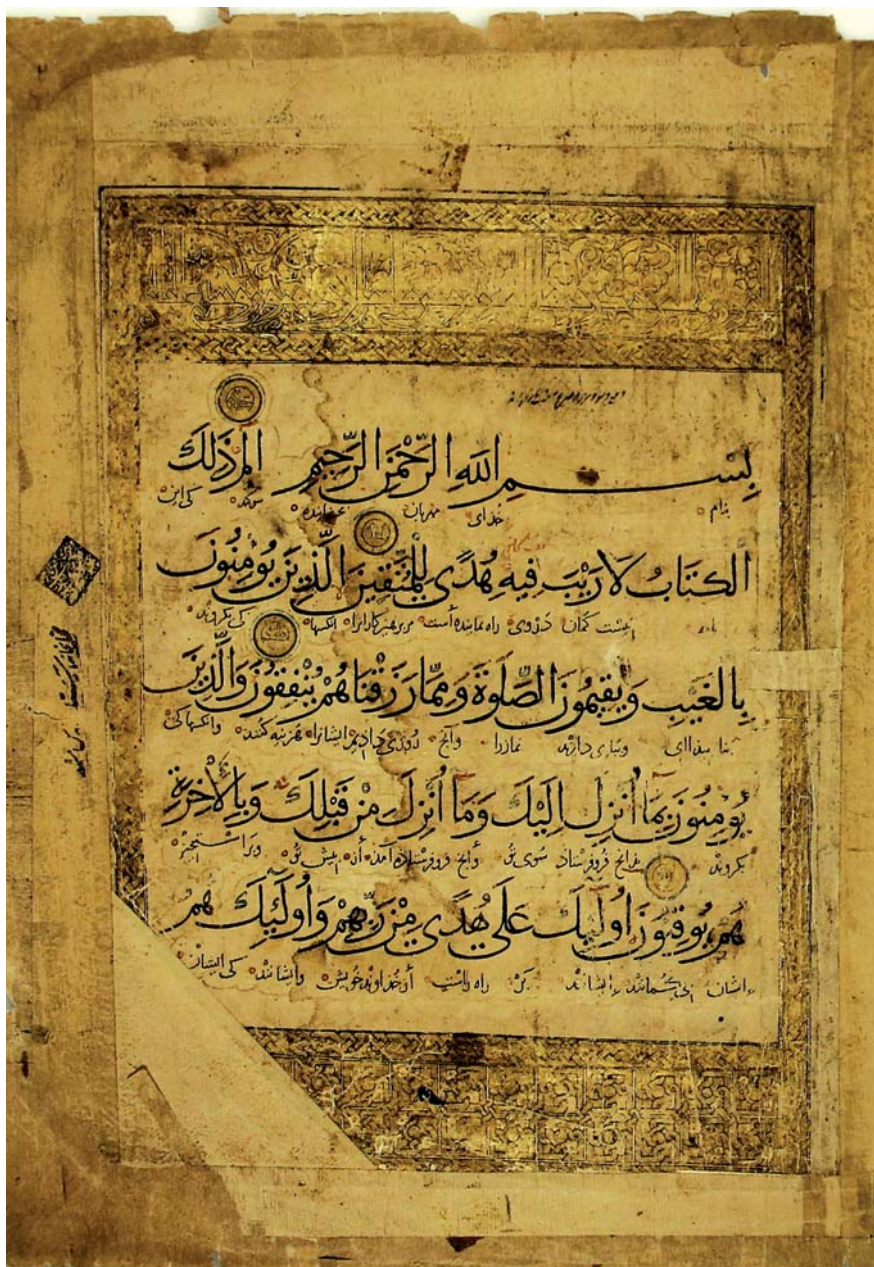 بِسْمِ اللَّهِ الرَّحْمٰنِ الرَّحِيمِ الم ذَلِكَ
خدای مهربان بخشاینده سوگند کی این
الْكِتَابُ لَا رَيْبَ فِيهِ هُدًى لِلْمُتَّقِينَ الَّذِينَ يُؤْمِنُونَ
نیست گمان دروی راه نماینده است مر پرهیزکارانرا آنکسها کی بگروند
بِالْغَيْبِ وَيُقِيمُونَ الصَّلَوةَ وَمِمَّا رَزَقْنَاهُمْ يُنْفِقُونَ وَالَّذِينَ
وبپای دارند نمازرا وآنچ روزی دادیم ایشانرا هزینه کنند وانکسها کی
يُؤْمِنُونَ بِمَا أُنْزِلَ إِلَيْكَ وَمَا أُنْزِلَ مِنْ قَبْلِكَ وَبِالْآخِرَةِ
بگروند بدانچ فروفرستاد سوی تو وآنچ فروفرستاده آمد از پیش تو
هُمْ يُوقِنُونَ أُولَئِكَ عَلَى هُدًى مِنْ رَبِّهِمْ وَأُولَئِكَ هُمُ
ایشان بی گمانند ایشانند بر راه راست از خداوند خویش وایشانند کی ایشان